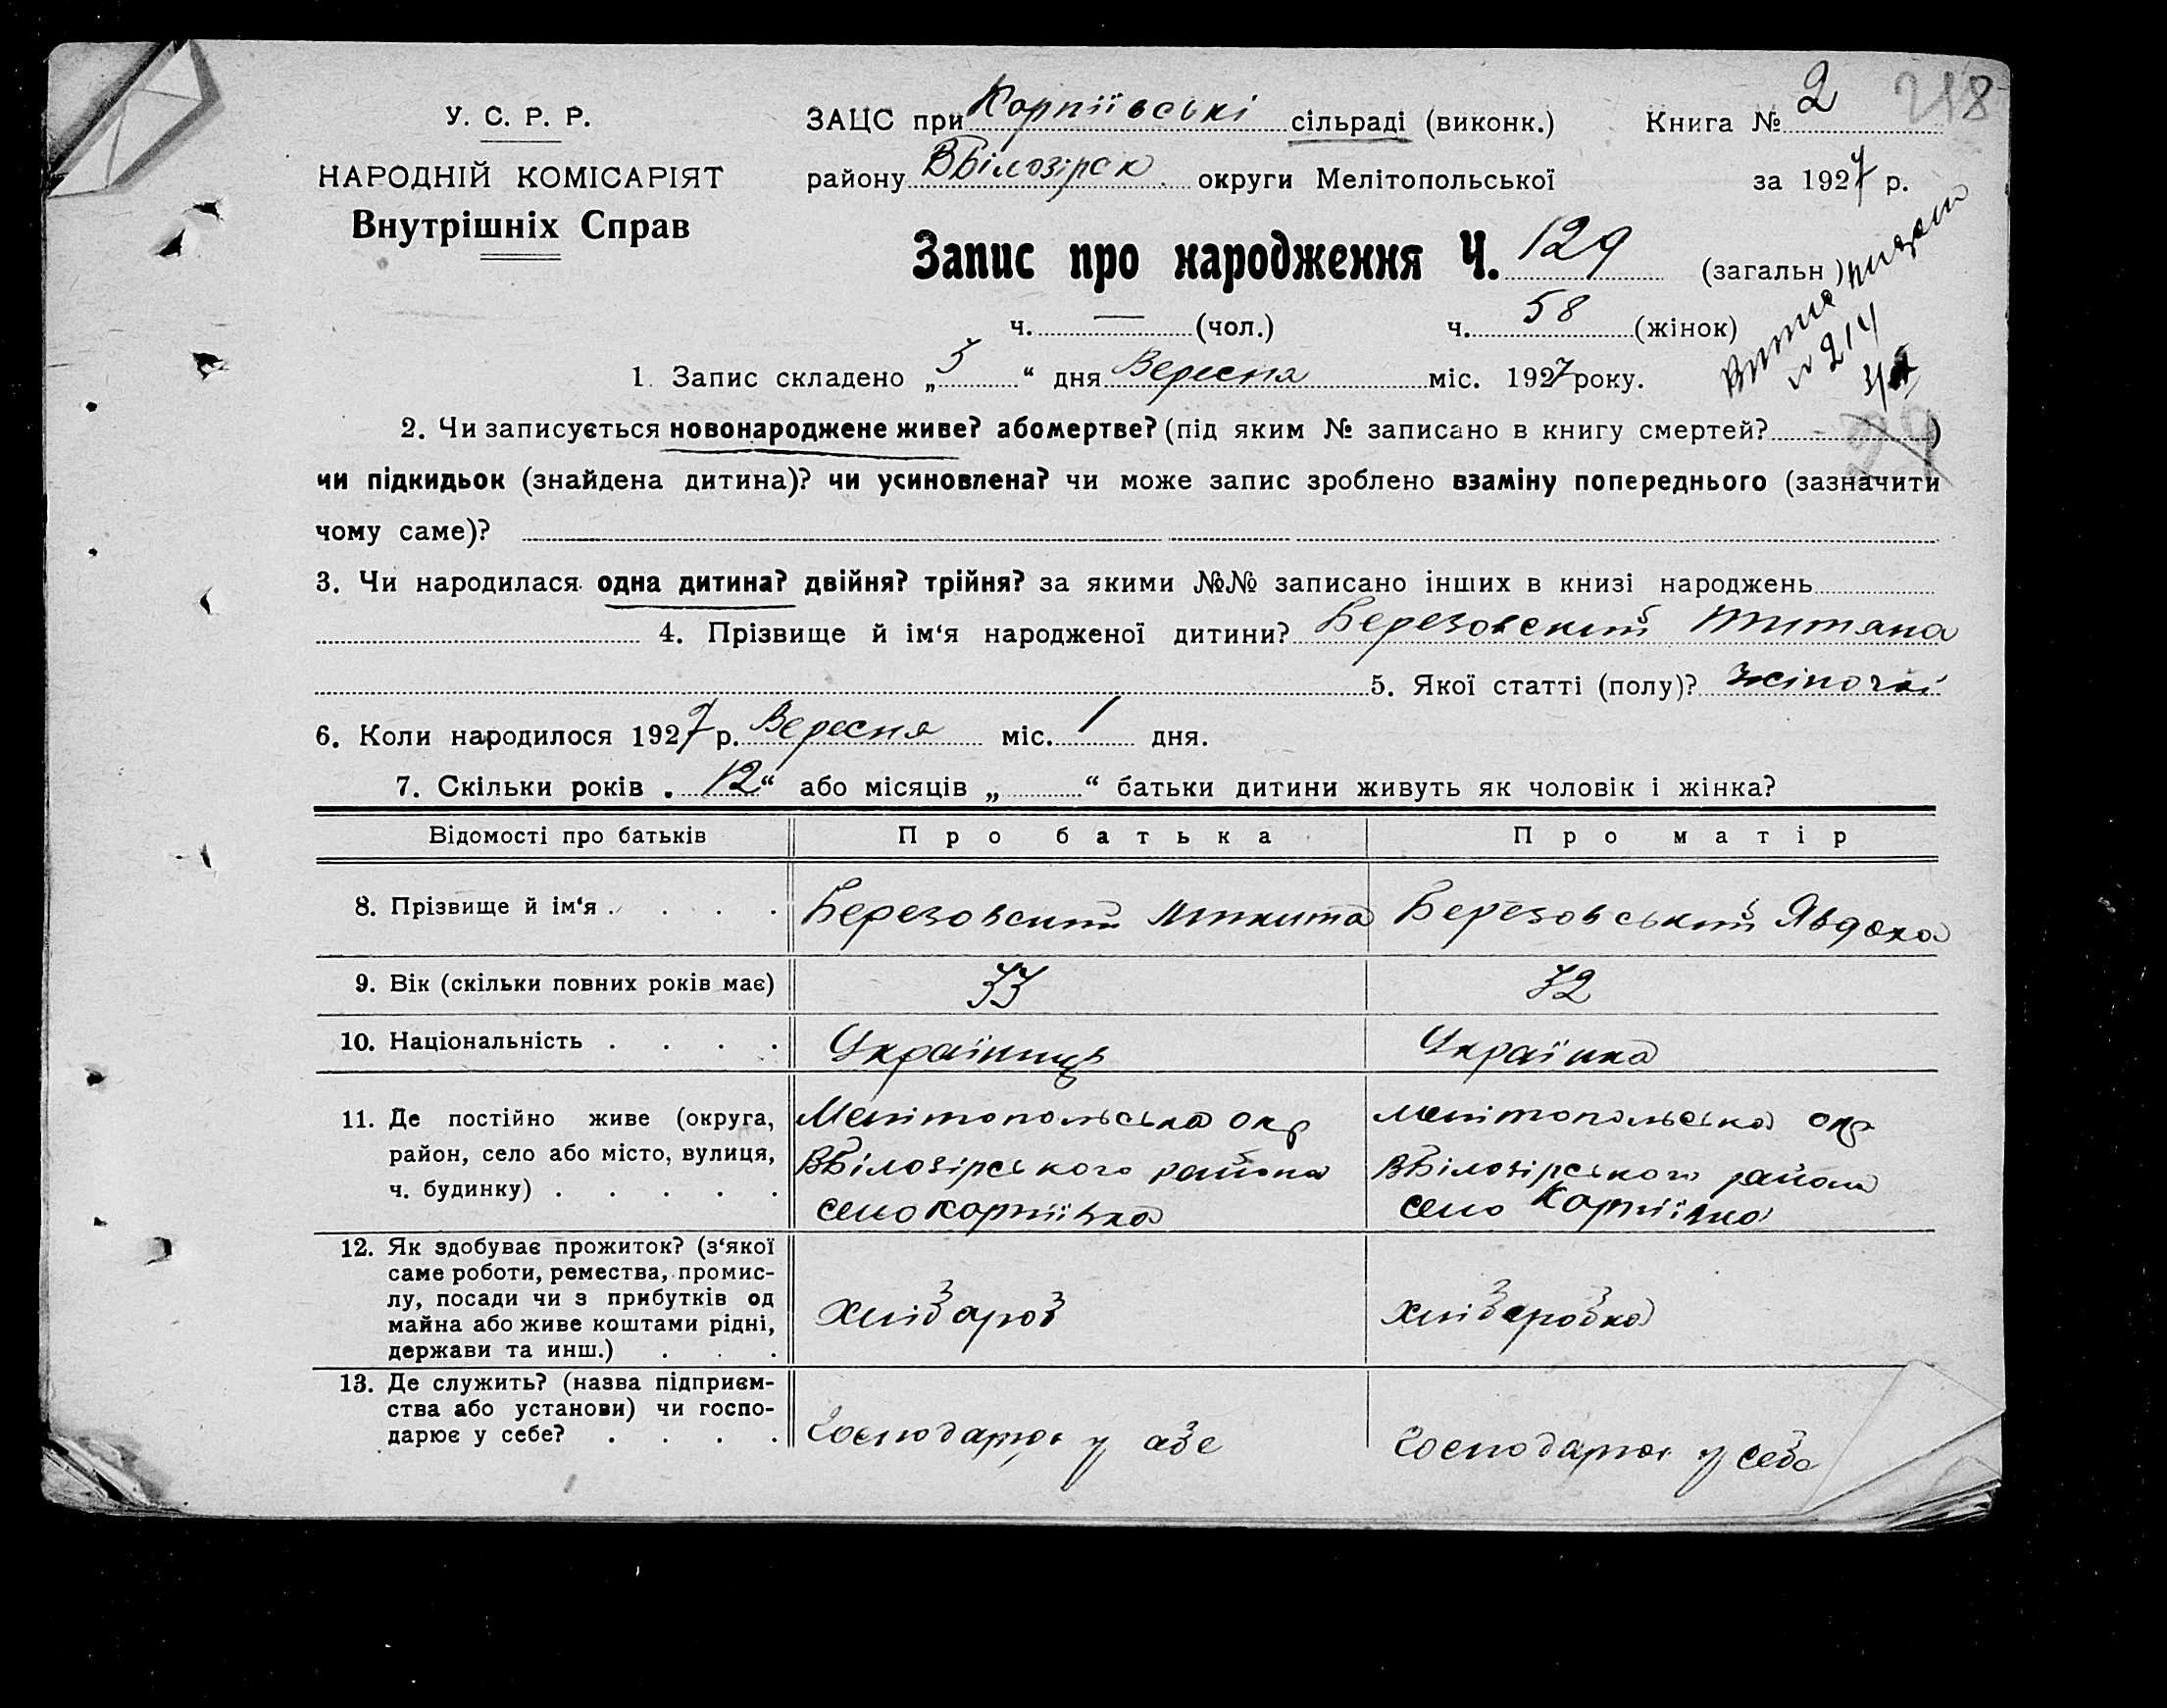 У. С. Р. Р.
НАРОДНІЙ КОМІСАРІЯТ
Внутрішніх Справ
ЗАЦС при Карпіївські сільраді (виконк.) Книга № 2 218
району ВБілозірск. округи Мелітопольської за 1927 р.
Запис про народження Ч. 129 (загальн)
ч. — (чол.) ч. 58 (жінок)
№ 214
1. Запис складено „ 3 “ дня Вересня міс. 1927 року.
2. Чи записується новонароджене живе? або мертве? (під яким № записано в книгу смертей? - )
чи підкидьок (знайдена дитина)? чи усиновлена? чи може запис зроблено взаміну попереднього (зазначити
чому саме)?
3. Чи народилася одна дитина? двійня? трійня? за якими №№ записано інших в книзі народжень
4. Прізвище й ім‘я народженої дитини? Березовский Титяна
5. Якої статті (полу)? жіночої
6. Коли народилося 1927 р. Вересня міс. 1 дня.
7. Скільки років „ 12 “ або місяців „ “ батьки дитини живуть як чоловік і жінка?
Відомості про батьків Про батька Про матір
8. Прізвище й ім‘я . . . . Березовский Микита Березовський Явдоха
9. Вік (скільки повних років має) 33 32
10. Національність . . . . Українець Українка
11. Де постійно живе (округа, Мелітопольська окр Мелітопольська окр
район, село або місто, вулиця, ВБілозірського района ВБілозірського района
ч. будинку) . . . . . село Карпіївка село Карпіївка
12. Як здобуває прожиток? (з‘якої
саме роботи, ремества, промис-
лу, посади чи з прибутків од Хлібароб Хлібаробка
майна або живе коштами рідні,
держави та инш.) . . .
13. Де служить? (назва підприєм-
ства або установи) чи госпо-
дарює у себе? . . . . Господарює у себе Господарює у себе